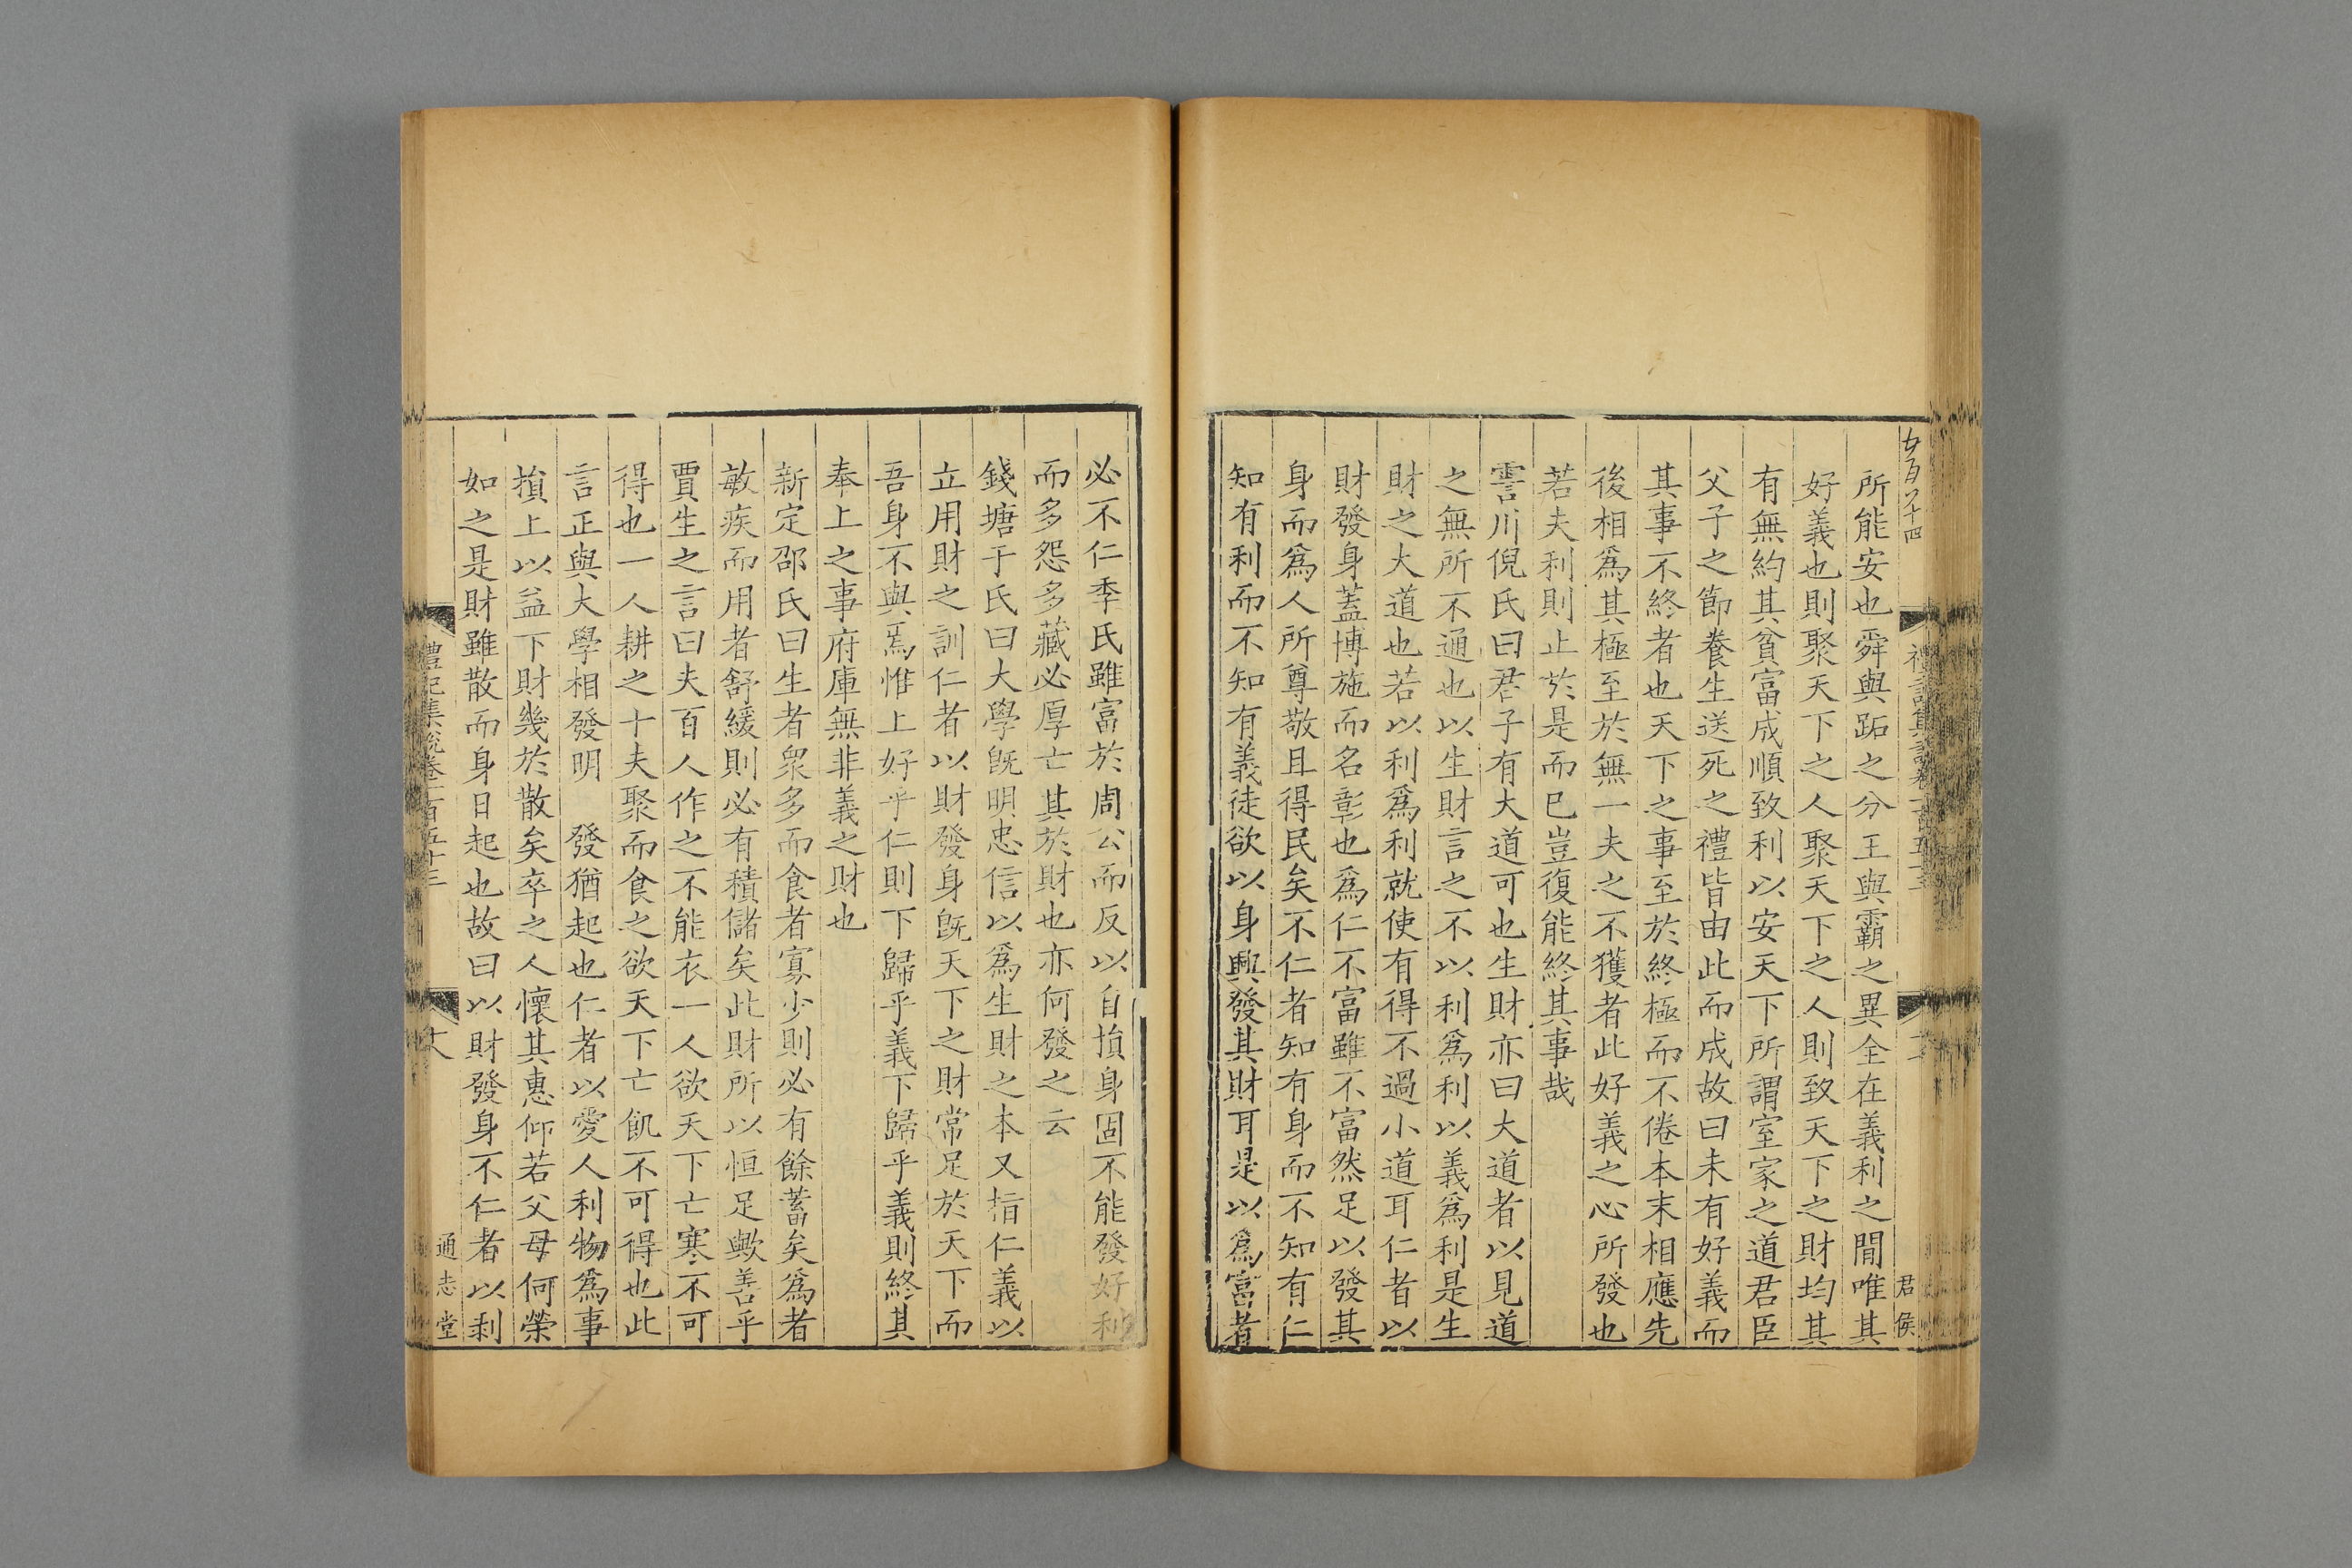 所能安也舜與跖之分王與霸之異全在義利之閒唯其
好義也則聚天下之人聚天下之人則致天下之財均其
有無約其貧富成順致利以安天下所謂室家之道君臣
父子之節養生送死之禮皆由此而成故曰未有好義而
其事不終者也天下之事至於終極而不倦本末相應先
後相爲其極至於無一夫之不獲者此好義之心所發也
若夫利則止於是而已豈復能終其事哉
霅川倪氏曰君子有大道可也生財亦曰大道者以見道
之無所不通也以生財言之不以利爲利以義爲利是生
財之大道也若以利爲利就使有得不過小道耳仁者以
財發身蓋博施而名彰也爲仁不富雖不富然足以發其
身而爲人所尊敬且得民矣不仁者知有身而不知有仁
知有利而不知有義徒欲以身興發其財耳是以爲富者
君侯
必不仁季氏雖富於周公而反以自損身固不能發好利
而多怨多藏必厚亡其於財也亦何發之云
錢塘于氏曰大學旣明忠信以爲生財之本又指仁義以
立用財之訓仁者以財發身旣天下之財常足於天下而
吾身不與焉惟上好乎仁則下歸乎義下歸乎義則終其
奉上之事府庫無非義之財也
新定邵氏曰生者衆多而食者寡少則必有餘蓄矣爲者
敏疾而用者舒緩則必有積儲矣此財所以恒足歟善乎
賈生之言曰夫百人作之不能衣一人欲天下亡寒不可
得也一人耕之十夫聚而食之欲天下亡飢不可得也此
言正與大學相發明 發猶起也仁者以愛人利物爲事
損上以益下財幾於散矣卒之人懷其惠仰若父母何榮
如之是財雖散而身日起也故曰以財發身不仁者以剥
禮記集說卷一百五十三
通志堂